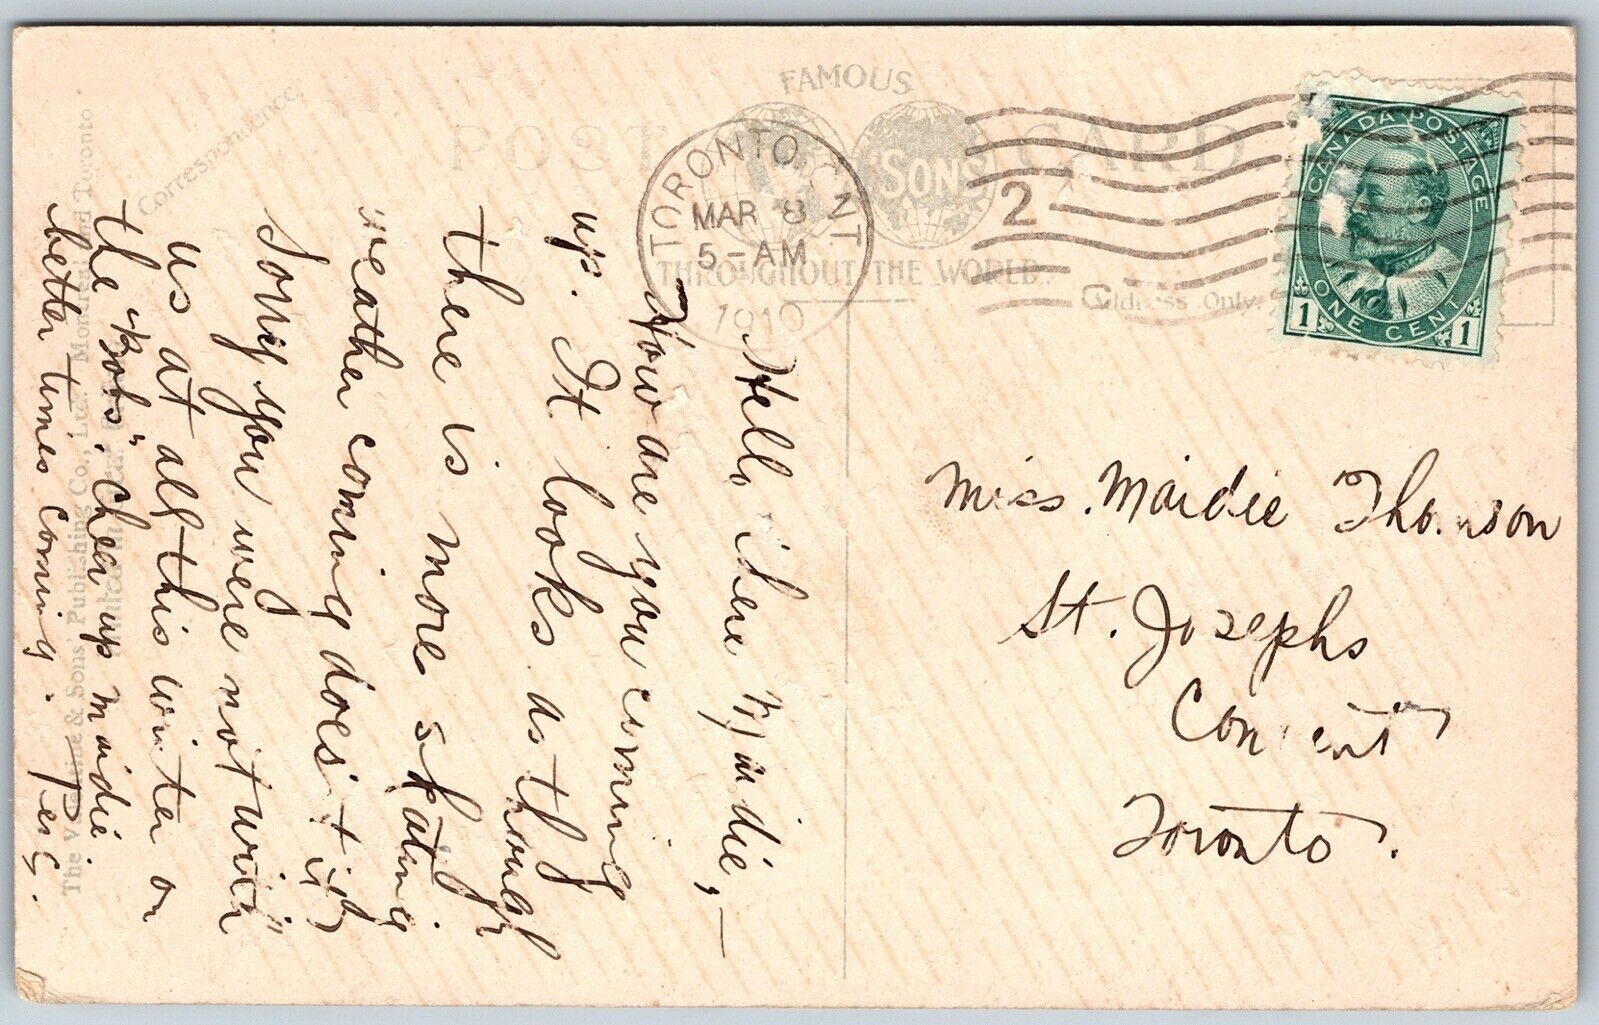 FAMOUS
POST CARD
SONS
THROUGHOUT THE WORLD.
Correspondence.
Address Only.
TORONTO, ONT
MAR 8
5-AM
1910
2
CANADA POSTAGE
ONE CENT
1 1
Hello there Maidie,—
How are you coming
up. It looks as though
there is more skating
weather coming does't it?
Sorry you were not with
us at all this winter on
the "Bobs". Chear up maidie
better times coming.
Perc.
Miss. Maidie Thomson
St. Josephs
Convent
Toronto.
The Valentine & Sons' Publishing Co., Ltd. Montreal and Toronto